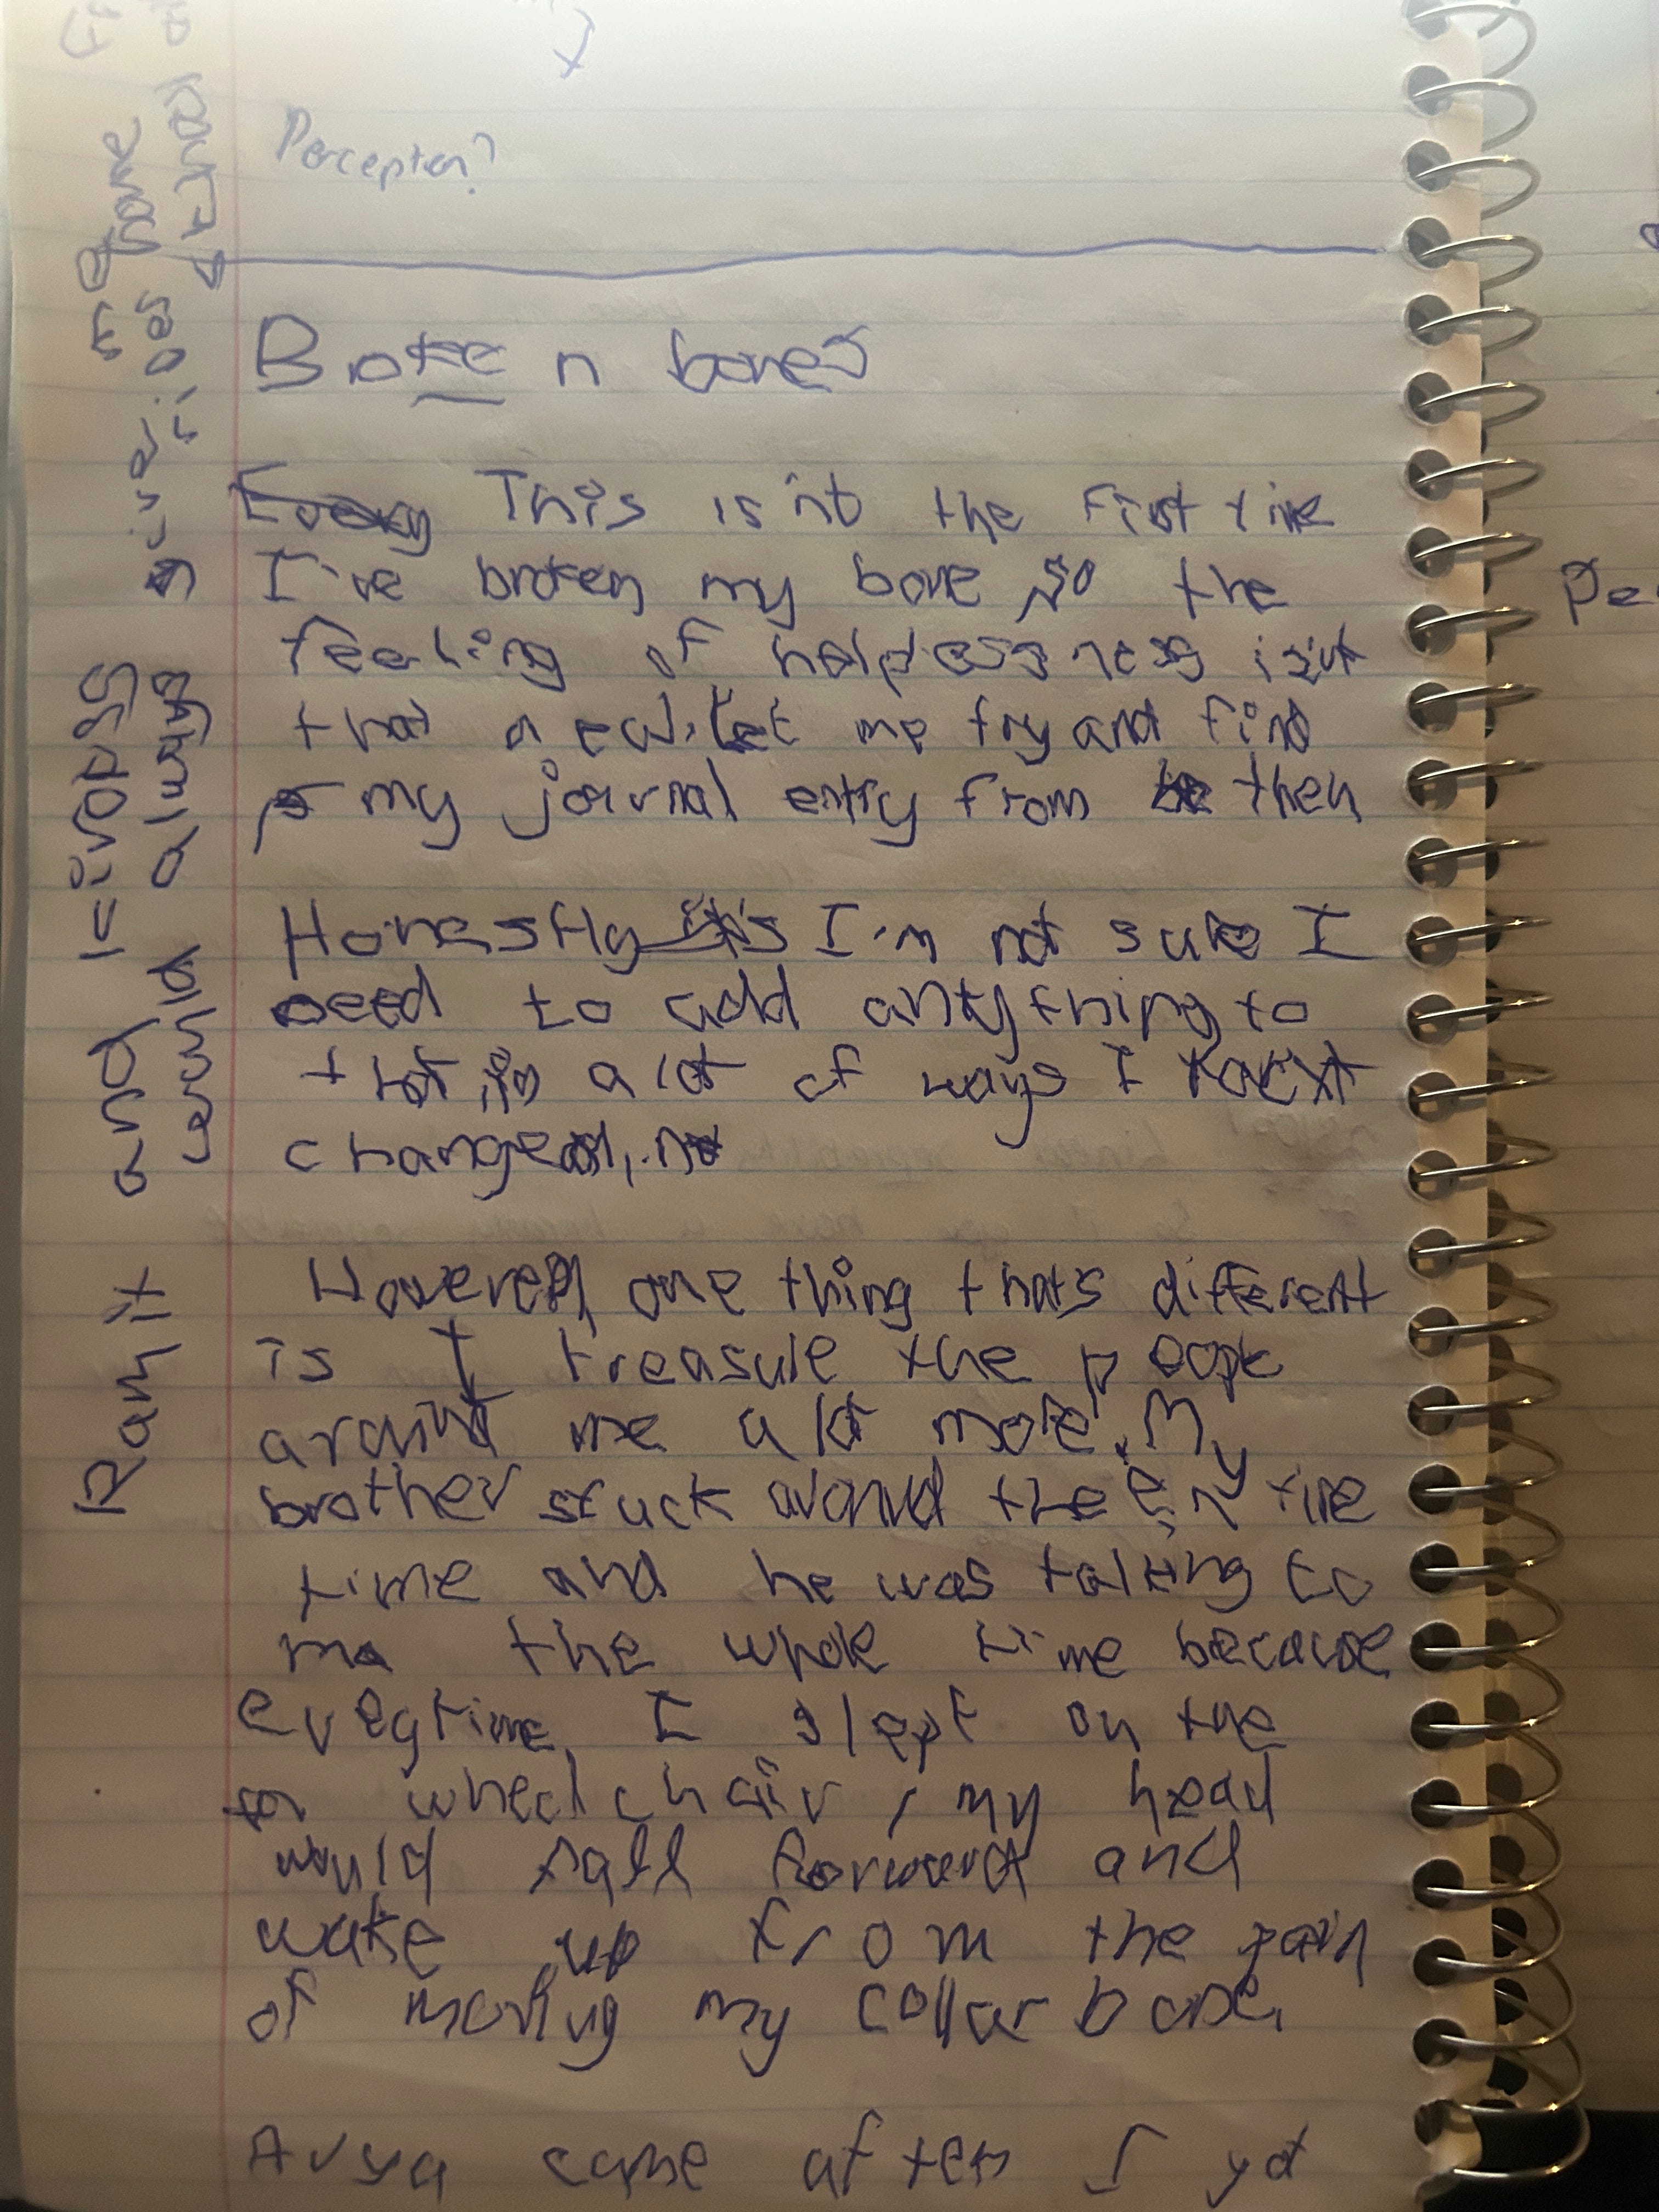 Percepton?
Broken bones
This isn't the first time
I've broken my bone so the
feeling of helplessness isn't
that new. Let me try and find
my journal entry from then
Honestly I'm not sure I
need to add anything to
that, in a lot of ways I
changed,
However, one thing that's different
is I treasure the people
around me a lot more. My
brother stuck around the entire
time and he was talking to
me the whole time because
everytime I slept on the
wheelchair, my head
would fall forward and
wake up from the pain
of moving my collar bone.
Avya came after I got
Ranjit and
always
giving me home
Pe